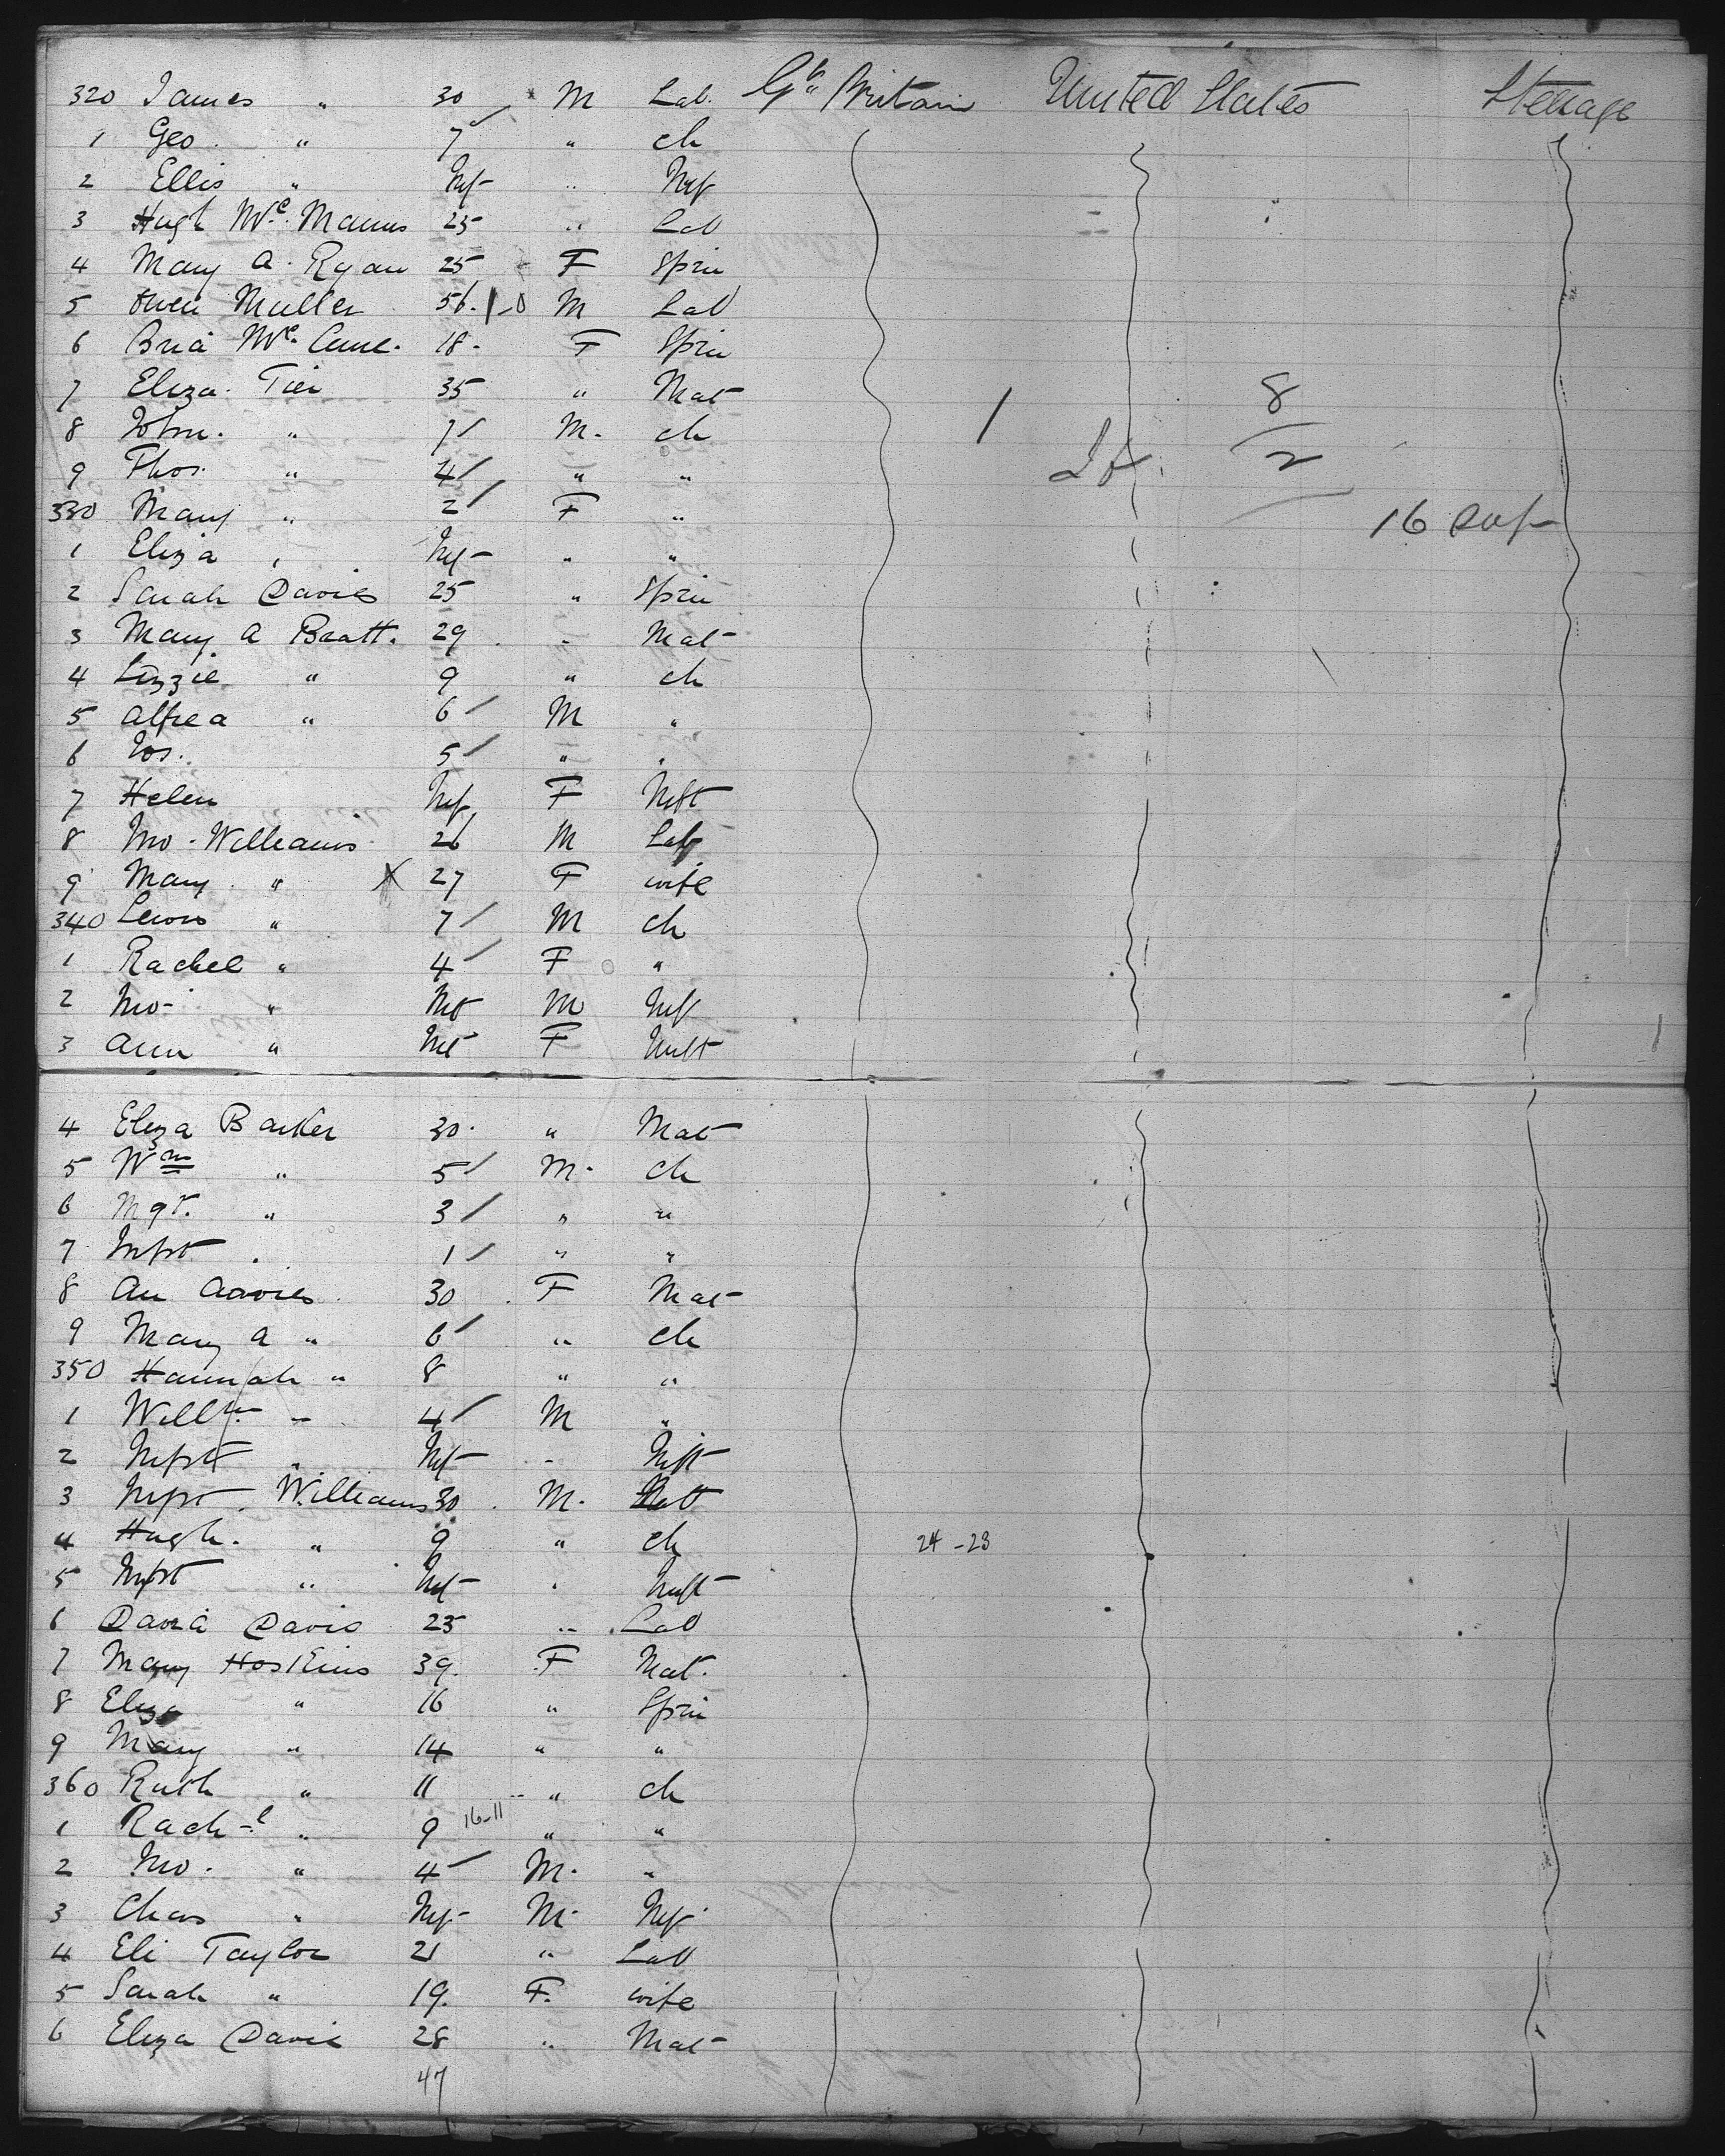 320 James " 30 M Lab. Gt Britain United States Steerage
1 Geo. " 7 " ch
2 Ellis " Inf " Inf
3 Hugh Mc. Manus 25 " Lab
4 Mary A. Ryan 25 F Spin
5 Owen Muller 56. 1-0 M Lab
6 Mc. 18. F Spin
7 Eliza. Tier 35 " Mat 1 8
8 John. " 7 M. ch
9 Thos. " 4 " " 2
330 Mary " 2 F " 16
1 Eliza " Inf " "
2 Sarah Davies 25 " Spin
3 Mary A Bratt. 29 " Mat
4 Lizzie " 9 " ch
5 Alfred " 6 M "
6 Jos. 5 " "
7 Helen Inf F Inft
8 Jno. Williams 26 M Lab
9 Mary " X 27 F wife
340 Lewis " 7 M ch
1 Rachel " 4 F "
2 Jno. " Inf M Inf
3 Ann " Inf F Inft
4 Eliza Barker 30. " Mat
5 Wm " 5 M. ch
6 Mgt. " 3 " "
7 Infst " 1 " "
8 An Davies 30 F Mat
9 Mary A " 6 " ch
350 Hannah " 8 " "
1 Willm " 4 M "
2 Infst " Inf " Inft
3 Infst. Williams 30 M.
4 Hugh. " 9 " ch 24-23
5 Infst " Inf " Inft
6 David Davis 25 " Lab
7 Mary Hoskins 39. F Mat.
8 Eliza " 16 " Spin
9 Mary " 14 " "
360 Ruth " 11 " ch
1 Rach-l " 9 16-11 " "
2 Jno. " 4 M. "
3 Chas " Inf M. Inf
4 Eli Taylor 21 " Lab
5 Sarah " 19. F. wife
6 Eliza Davis 28 " Mat
47